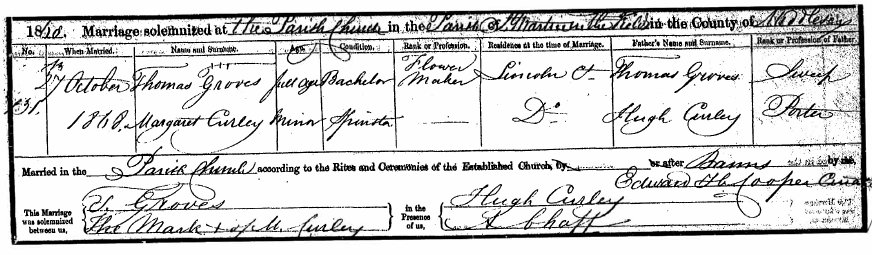 1868. Marriage solemnized at the Parish Church in the Parish of St Martin in the Fields in the County of Middlesex
No. When Married. Name and Surname. Age. Condition. Rank or Profession. Residence at the time of Marriage. Father's Name and Surname. Rank or Profession of Father.
27 October Thomas Groves full age Bachelor Flower Maker Lincoln Ct Thomas Groves Sweep
131. 1868. Margaret Curley Minor Spinster — Do Hugh Curley Porter
Married in the Parish Church according to the Rites and Ceremonies of the Established Church, by or after Banns by me,
Edward H Cooper Curate
This Marriage was solemnized between us, T. Groves in the Presence of us, Hugh Curley
The Mark + of M. Curley A Chaff